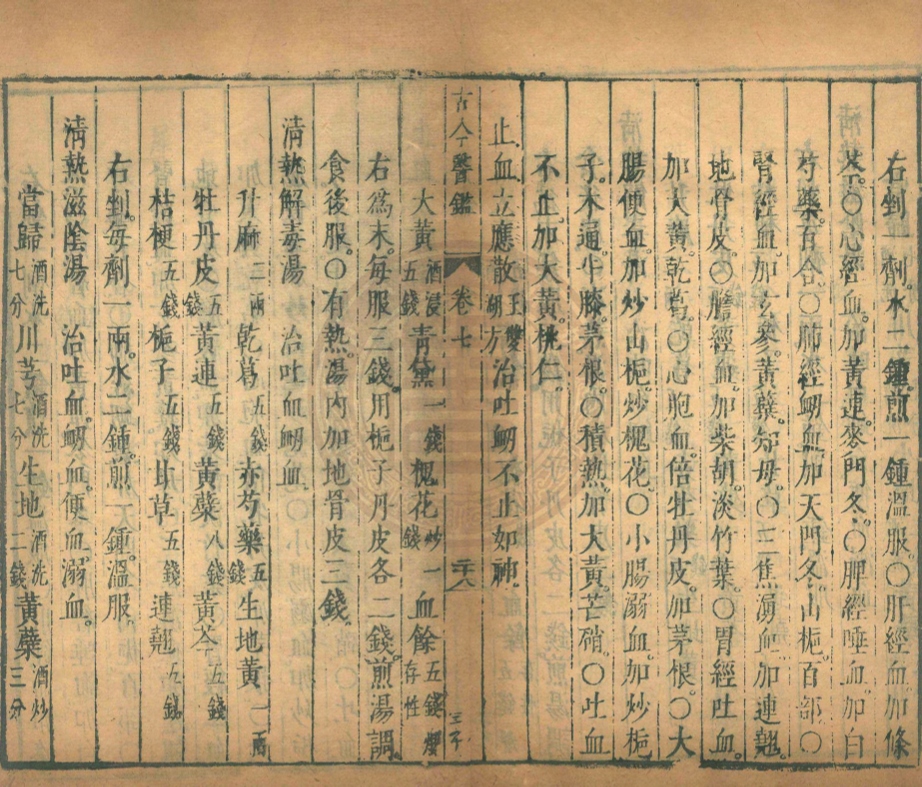 右剉一劑水二鍾煎一鍾溫服○肝經血加條
芩○心經血加黃連麥門冬○脾經唾血加白
芍藥百合○肺經衂血加天門冬山梔百部○
腎經血加玄參黃蘗知母○三焦湧血加連翹
地骨皮○膽經血加柴胡淡竹葉○胃經吐血
加大黃乾葛○心胞血倍牡丹皮加茅根○大
腸便血加炒山梔炒槐花○小腸溺血加炒梔
子木通牛膝茅根○積熱加大黃芒硝○吐血
不止加大黃桃仁
止血立應散 王雙湖方 治吐衂不止如神
大黃 酒浸五錢 青黛 一錢 槐花 炒一錢 血餘 五錢存性
古今醫鑑 卷七 二十八
右爲末每服三錢用梔子丹皮各二錢煎湯調
食後服○有熱湯內加地骨皮三錢
淸熱解毒湯 治吐血衂血
升麻 二兩 乾葛 五錢 赤芍藥 五錢 生地黃 一兩
牡丹皮 五錢 黃連 五錢 黃蘗 八錢 黃芩 五錢
桔梗 五錢 梔子 五錢 甘草 五錢 連翹 五錢
右剉每劑一兩水二鍾煎一鍾溫服
淸熱滋陰湯 治吐血衂血便血溺血
當歸 酒洗七分 川芎 酒洗七分 生地 酒洗二錢 黃蘗 酒炒三分